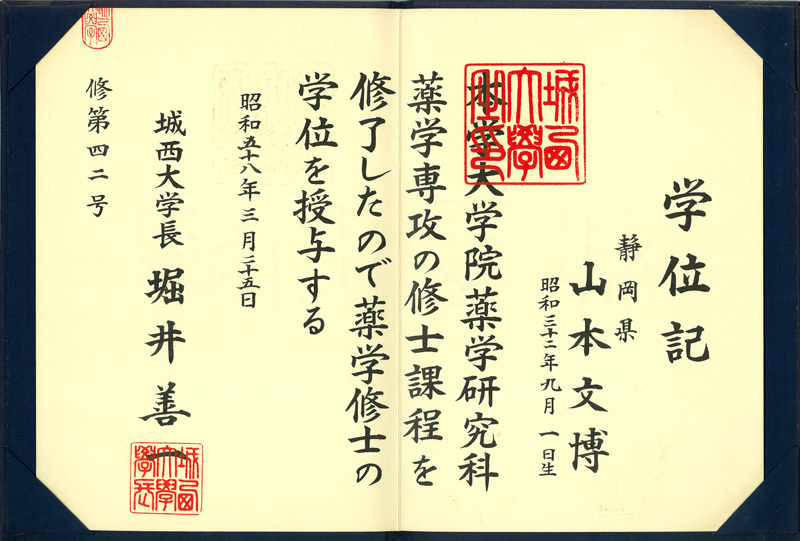 学位記
静岡県
山本文博
昭和三十二年九月一日生
本学大学院薬学研究科
薬学専攻の修士課程を
修了したので薬学修士の
学位を授与する
昭和五十八年三月二十五日
城西大学長 堀井善一
修第四二号
城西大學